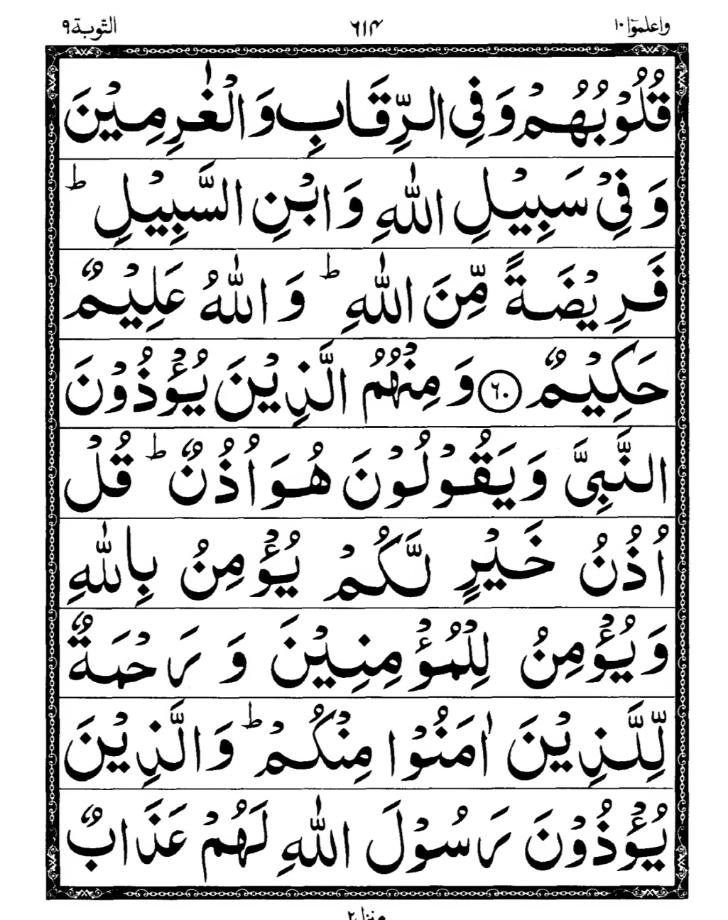 واعلموٓا ١٠ ٦١٤ التوبة ٩
قُلُوْبُهُمْ وَفِی الرِّقَابِ وَالْغٰرِمِيْنَ
وَفِیْ سَبِيْلِ اللّٰهِ وَابْنِ السَّبِيْلِ ؕ
فَرِيْضَةً مِّنَ اللّٰهِ ؕ وَاللّٰهُ عَلِيْمٌ
حَكِيْمٌ ٦٠ وَمِنْهُمُ الَّذِيْنَ يُؤْذُوْنَ
النَّبِیَّ وَيَقُوْلُوْنَ هُوَ اُذُنٌ ؕ قُلْ
اُذُنُ خَيْرٍ لَّكُمْ يُؤْمِنُ بِاللّٰهِ
وَيُؤْمِنُ لِلْمُؤْمِنِيْنَ وَرَحْمَةٌ
لِّلَّذِيْنَ اٰمَنُوْا مِنْكُمْ ؕ وَالَّذِيْنَ
يُؤْذُوْنَ رَسُوْلَ اللّٰهِ لَهُمْ عَذَابٌ
منزل ٢